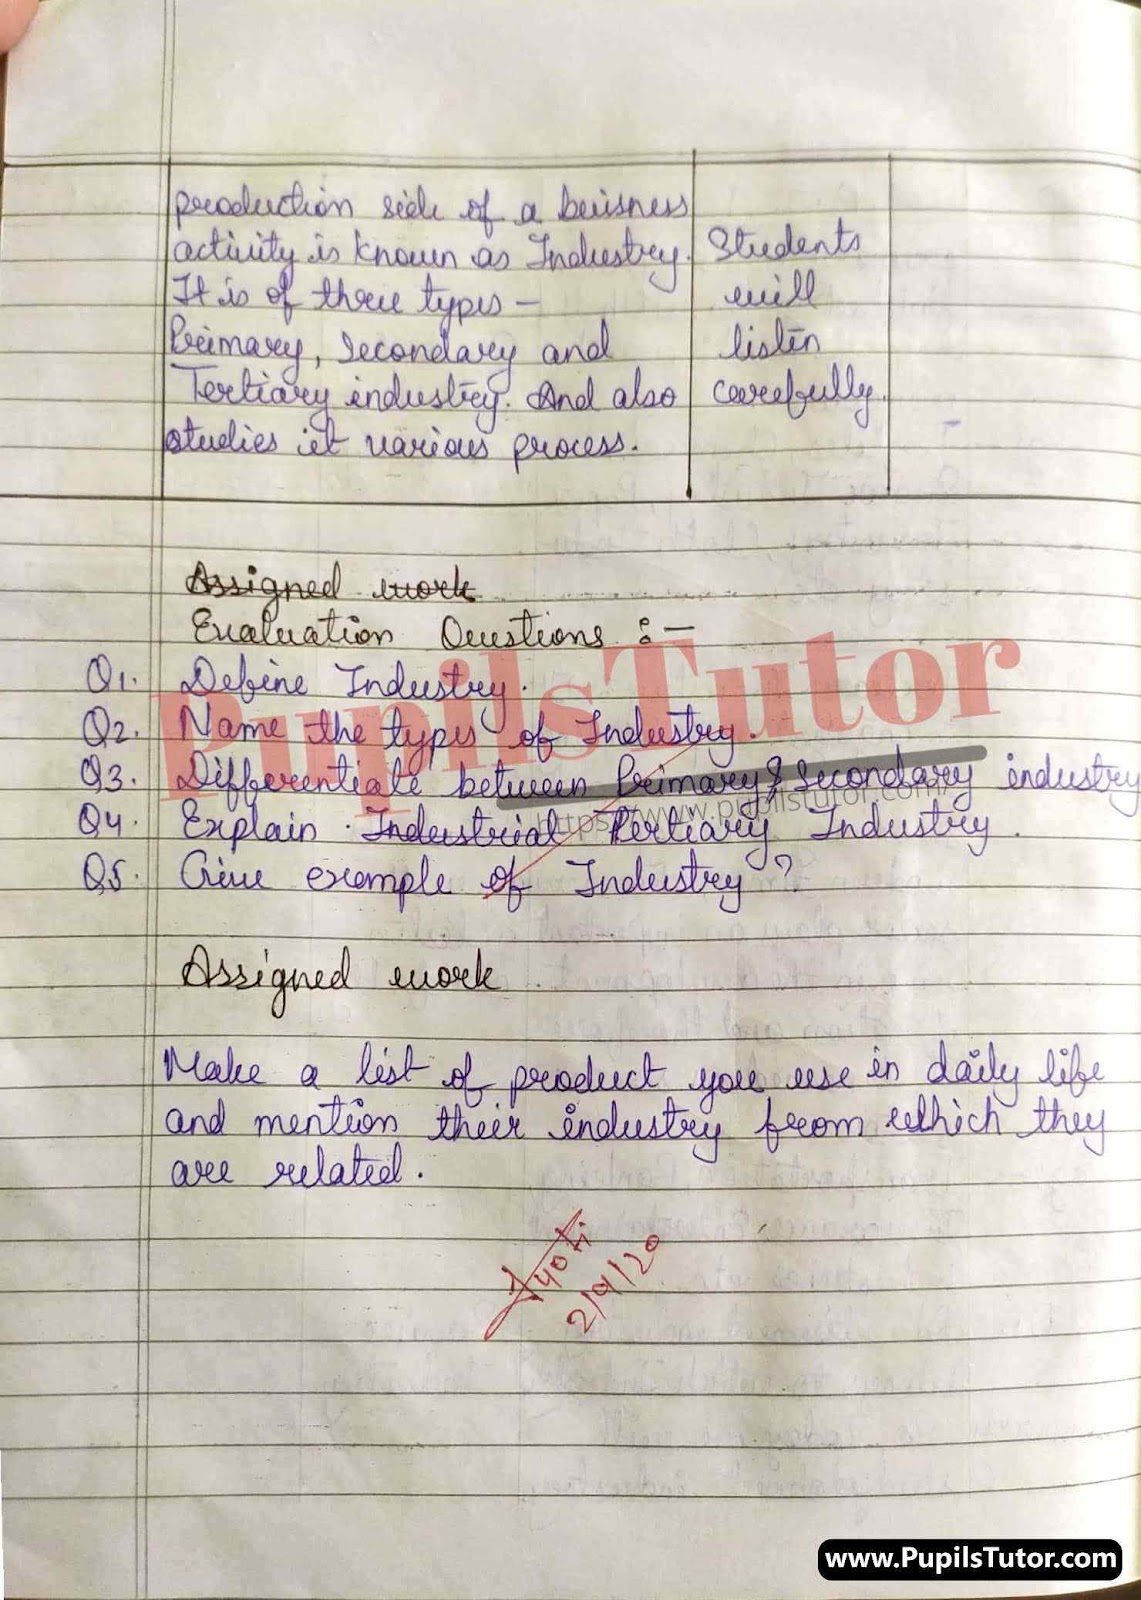 production side of a beuisness
activity is known as Industry.
It is of three types -
Primary, Secondary and
Tertiary industry. And also
studies iet various process.
Students
will
listen
carefully.
Assigned work
Evaluation Questions :-
Q1. Define Industry.
Q2. Name the types of Industry.
Q3. Differentiate between Primary & Secondary industry
Q4. Explain Industrial Tertiary Industry.
Q5. Give example of Industry?
PupilsTutor
https://www.pupilstutor.com/
Assigned work
Make a list of product you use in daily life
and mention their industry from which they
are related.
Jyoti
2/9/20
www.PupilsTutor.com